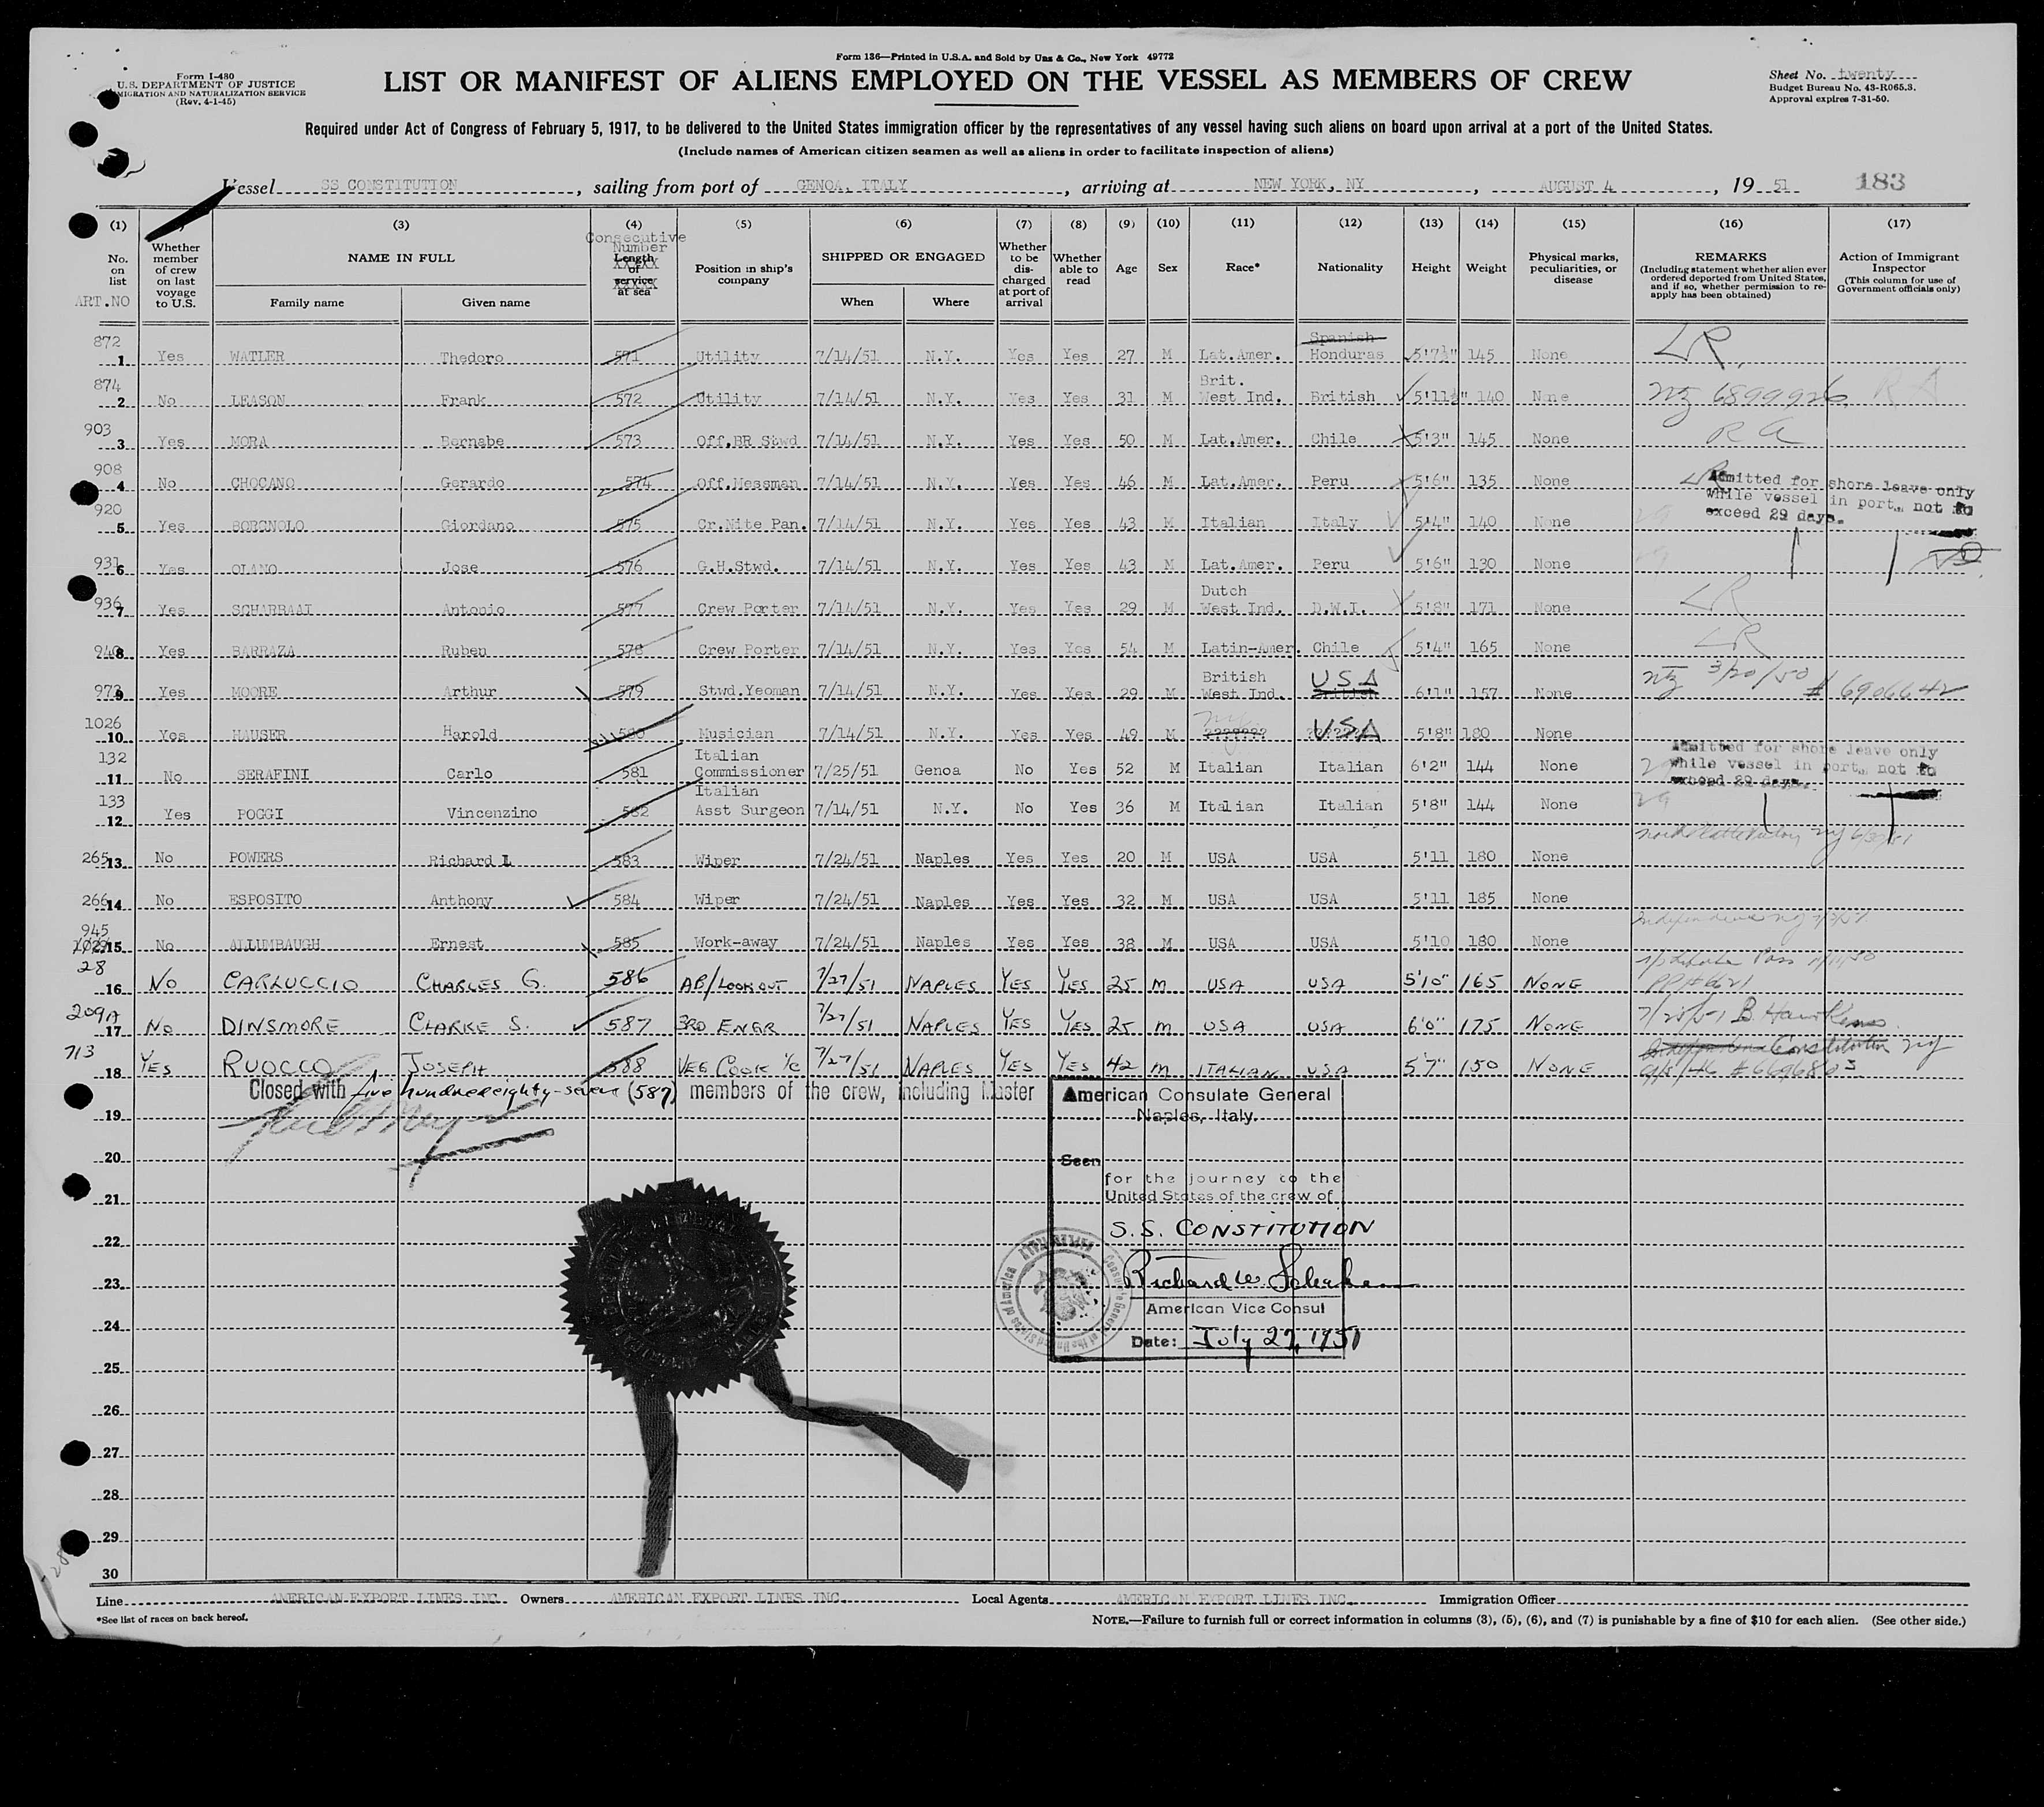 Form 136—Printed in U.S.A. and Sold by Unz & Co., New York 49772
Form I-480
U.S. DEPARTMENT OF JUSTICE
IMMIGRATION AND NATURALIZATION SERVICE
(Rev. 4-1-45)
LIST OR MANIFEST OF ALIENS EMPLOYED ON THE VESSEL AS MEMBERS OF CREW
Sheet No. twenty
Budget Bureau No. 43-R065.3.
Approval expires 7-31-50.
Required under Act of Congress of February 5, 1917, to be delivered to the United States immigration officer by the representatives of any vessel having such aliens on board upon arrival at a port of the United States.
(Include names of American citizen seamen as well as aliens in order to facilitate inspection of aliens)
Vessel SS CONSTITUTION, sailing from port of GENOA, ITALY, arriving at NEW YORK, NY, AUGUST 4, 19 51 183
(1) (3) (4) (5) (6) (7) (8) (9) (10) (11) (12) (13) (14) (15) (16) (17)
No. on list ART.NO
Whether member of crew on last voyage to U.S.
NAME IN FULL
Family name Given name
Consecutive Number
Length of service at sea
Position in ship's company
SHIPPED OR ENGAGED
When Where
Whether to be discharged at port of arrival
Whether able to read
Age Sex Race* Nationality Height Weight
Physical marks, peculiarities, or disease
REMARKS
(Including statement whether alien ever ordered deported from United States, and if so, whether permission to reapply has been obtained)
Action of Immigrant Inspector
(This column for use of Government officials only)
872 1 Yes WATLER Thedoro 571 Utility 7/14/51 N.Y. Yes Yes 27 M Lat.Amer. Spanish Honduras 5'7½" 145 None LR
874 2 No LEASON Frank 572 Utility 7/14/51 N.Y. Yes Yes 31 M Brit. West Ind. British 5'11½" 140 None 6899926 RA
903 3 Yes MORA Bernabe 573 Off.BR Stwd 7/14/51 N.Y. Yes Yes 50 M Lat.Amer. Chile 5'3" 145 None RA
908 4 No CHOCANO Gerardo 574 Off.Messman 7/14/51 N.Y. Yes Yes 46 M Lat.Amer. Peru 5'6" 135 None LR
Admitted for shore leave only while vessel in port, not to exceed 29 days.
920 5 Yes BORGNOLO Giordano 575 Cr.Nite Pan. 7/14/51 N.Y. Yes Yes 43 M Italian Italy 5'4" 140 None 29
931 6 Yes OLANO Jose 576 G.H.Stwd. 7/14/51 N.Y. Yes Yes 43 M Lat.Amer. Peru 5'6" 130 None 29
936 7 Yes SCHARBAAI Antonio 577 Crew Porter 7/14/51 N.Y. Yes Yes 29 M Dutch West Ind. D.W.I. 5'8" 171 None LR
940 8 Yes BARRAZA Ruben 578 Crew Porter 7/14/51 N.Y. Yes Yes 54 M Latin-Amer. Chile 5'4" 165 None LR
973 9 Yes MOORE Arthur 579 Stwd.Yeoman 7/14/51 N.Y. Yes Yes 29 M British West Ind. British USA 6'1" 157 None 3/20/50 # 6906642
1026 10 Yes HAUSER Harold 580 Musician 7/14/51 N.Y. Yes Yes 49 M USA 5'8" 180 None
132 11 No SERAFINI Carlo 581 Italian Commissioner 7/25/51 Genoa No Yes 52 M Italian Italian 6'2" 144 None 29
Admitted for shore leave only while vessel in port, not to exceed 29 days.
133 12 Yes POGGI Vincenzino 582 Italian Asst Surgeon 7/14/51 N.Y. No Yes 36 M Italian Italian 5'8" 144 None 29
265 13 No POWERS Richard L 583 Wiper 7/24/51 Naples Yes Yes 20 M USA USA 5'11 180 None
266 14 No ESPOSITO Anthony 584 Wiper 7/24/51 Naples Yes Yes 32 M USA USA 5'11 185 None
945 15 No ALLUMBAUGH Ernest 585 Work-away 7/24/51 Naples Yes Yes 38 M USA USA 5'10 180 None
28 16 No CARLUCCIO CHARLES G. 586 AB/LOOKOUT 7/27/51 NAPLES YES YES 25 M USA USA 5'10" 165 NONE
209A 17 No DINSMORE CLARKE S. 587 3RD ENGR 7/27/51 NAPLES YES YES 25 M USA USA 6'0" 175 NONE
713 18 YES RUOCCO JOSEPH 588 VEG COOK 7/27/51 NAPLES YES YES 42 M ITALIAN USA 5'7" 150 NONE Constitution NY
Closed with five hundred eighty-seven (587) members of the crew, including Master
19
20
21
22
23
24
25
26
27
28
29
30
American Consulate General
Naples, Italy.
Seen
for the journey to the
United States of the crew of
S.S. CONSTITUTION
American Vice Consul
Date: July 27, 1951
Line AMERICAN EXPORT LINES INC. Owners AMERICAN EXPORT LINES INC. Local Agents AMERICAN EXPORT LINES INC. Immigration Officer
*See list of races on back hereof.
NOTE.—Failure to furnish full or correct information in columns (3), (5), (6), and (7) is punishable by a fine of $10 for each alien. (See other side.)